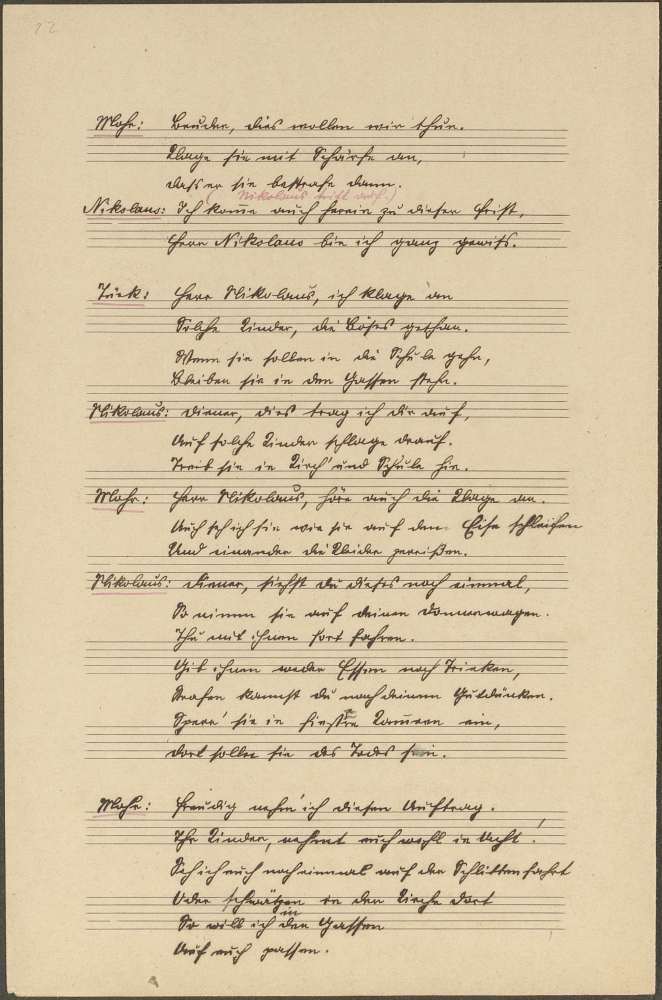 12
Mohr: Bruder, dies wollen wir thun.
Klage sie mit Schärfe an,
dass er sie bestrafe dann.
(Nikolaus tritt auf.)
Nikolaus: Ich komme auch herein zu dieser Frist,
Herr Nikolaus bin ich ganz gewiß.
Türk: Herr Nikolaus, ich klage an
Solche Kinder, die Böses gethan.
Wenn sie sollen in die Schule gehn,
Bleiben sie in den Gassen stehn.
Nikolaus: Diener, dies trag ich dir auf,
Auf solche Kinder schlage drauf.
Treib sie in Kirch' und Schule hin.
Mohr: Herr Nikolaus, höre auch die Klage an.
Auch seh ich sie wie sie auf dem Eise schleifen
Und einander die Kleider zerreißen.
Nikolaus: Diener, siehst du dieses noch einmal,
So nimm sie auf deinen Donnerwagen.
Thu mit ihnen fort fahren.
Gib ihnen weder Essen noch Trinken,
Strafen kannst du nach deinem Gutdünken.
Sperr' sie in finstre Kammern ein,
Dort sollen sie des Todes sein.
Mohr: Freudig nehm' ich diesen Auftrag.
Ihr Kinder, nehmt euch wohl in Acht!
Seh ich euch noch einmal auf der Schlittenfahrt
Oder schwätzen in der Kirche dort
So will ich in den Gassen
Auf euch passen.